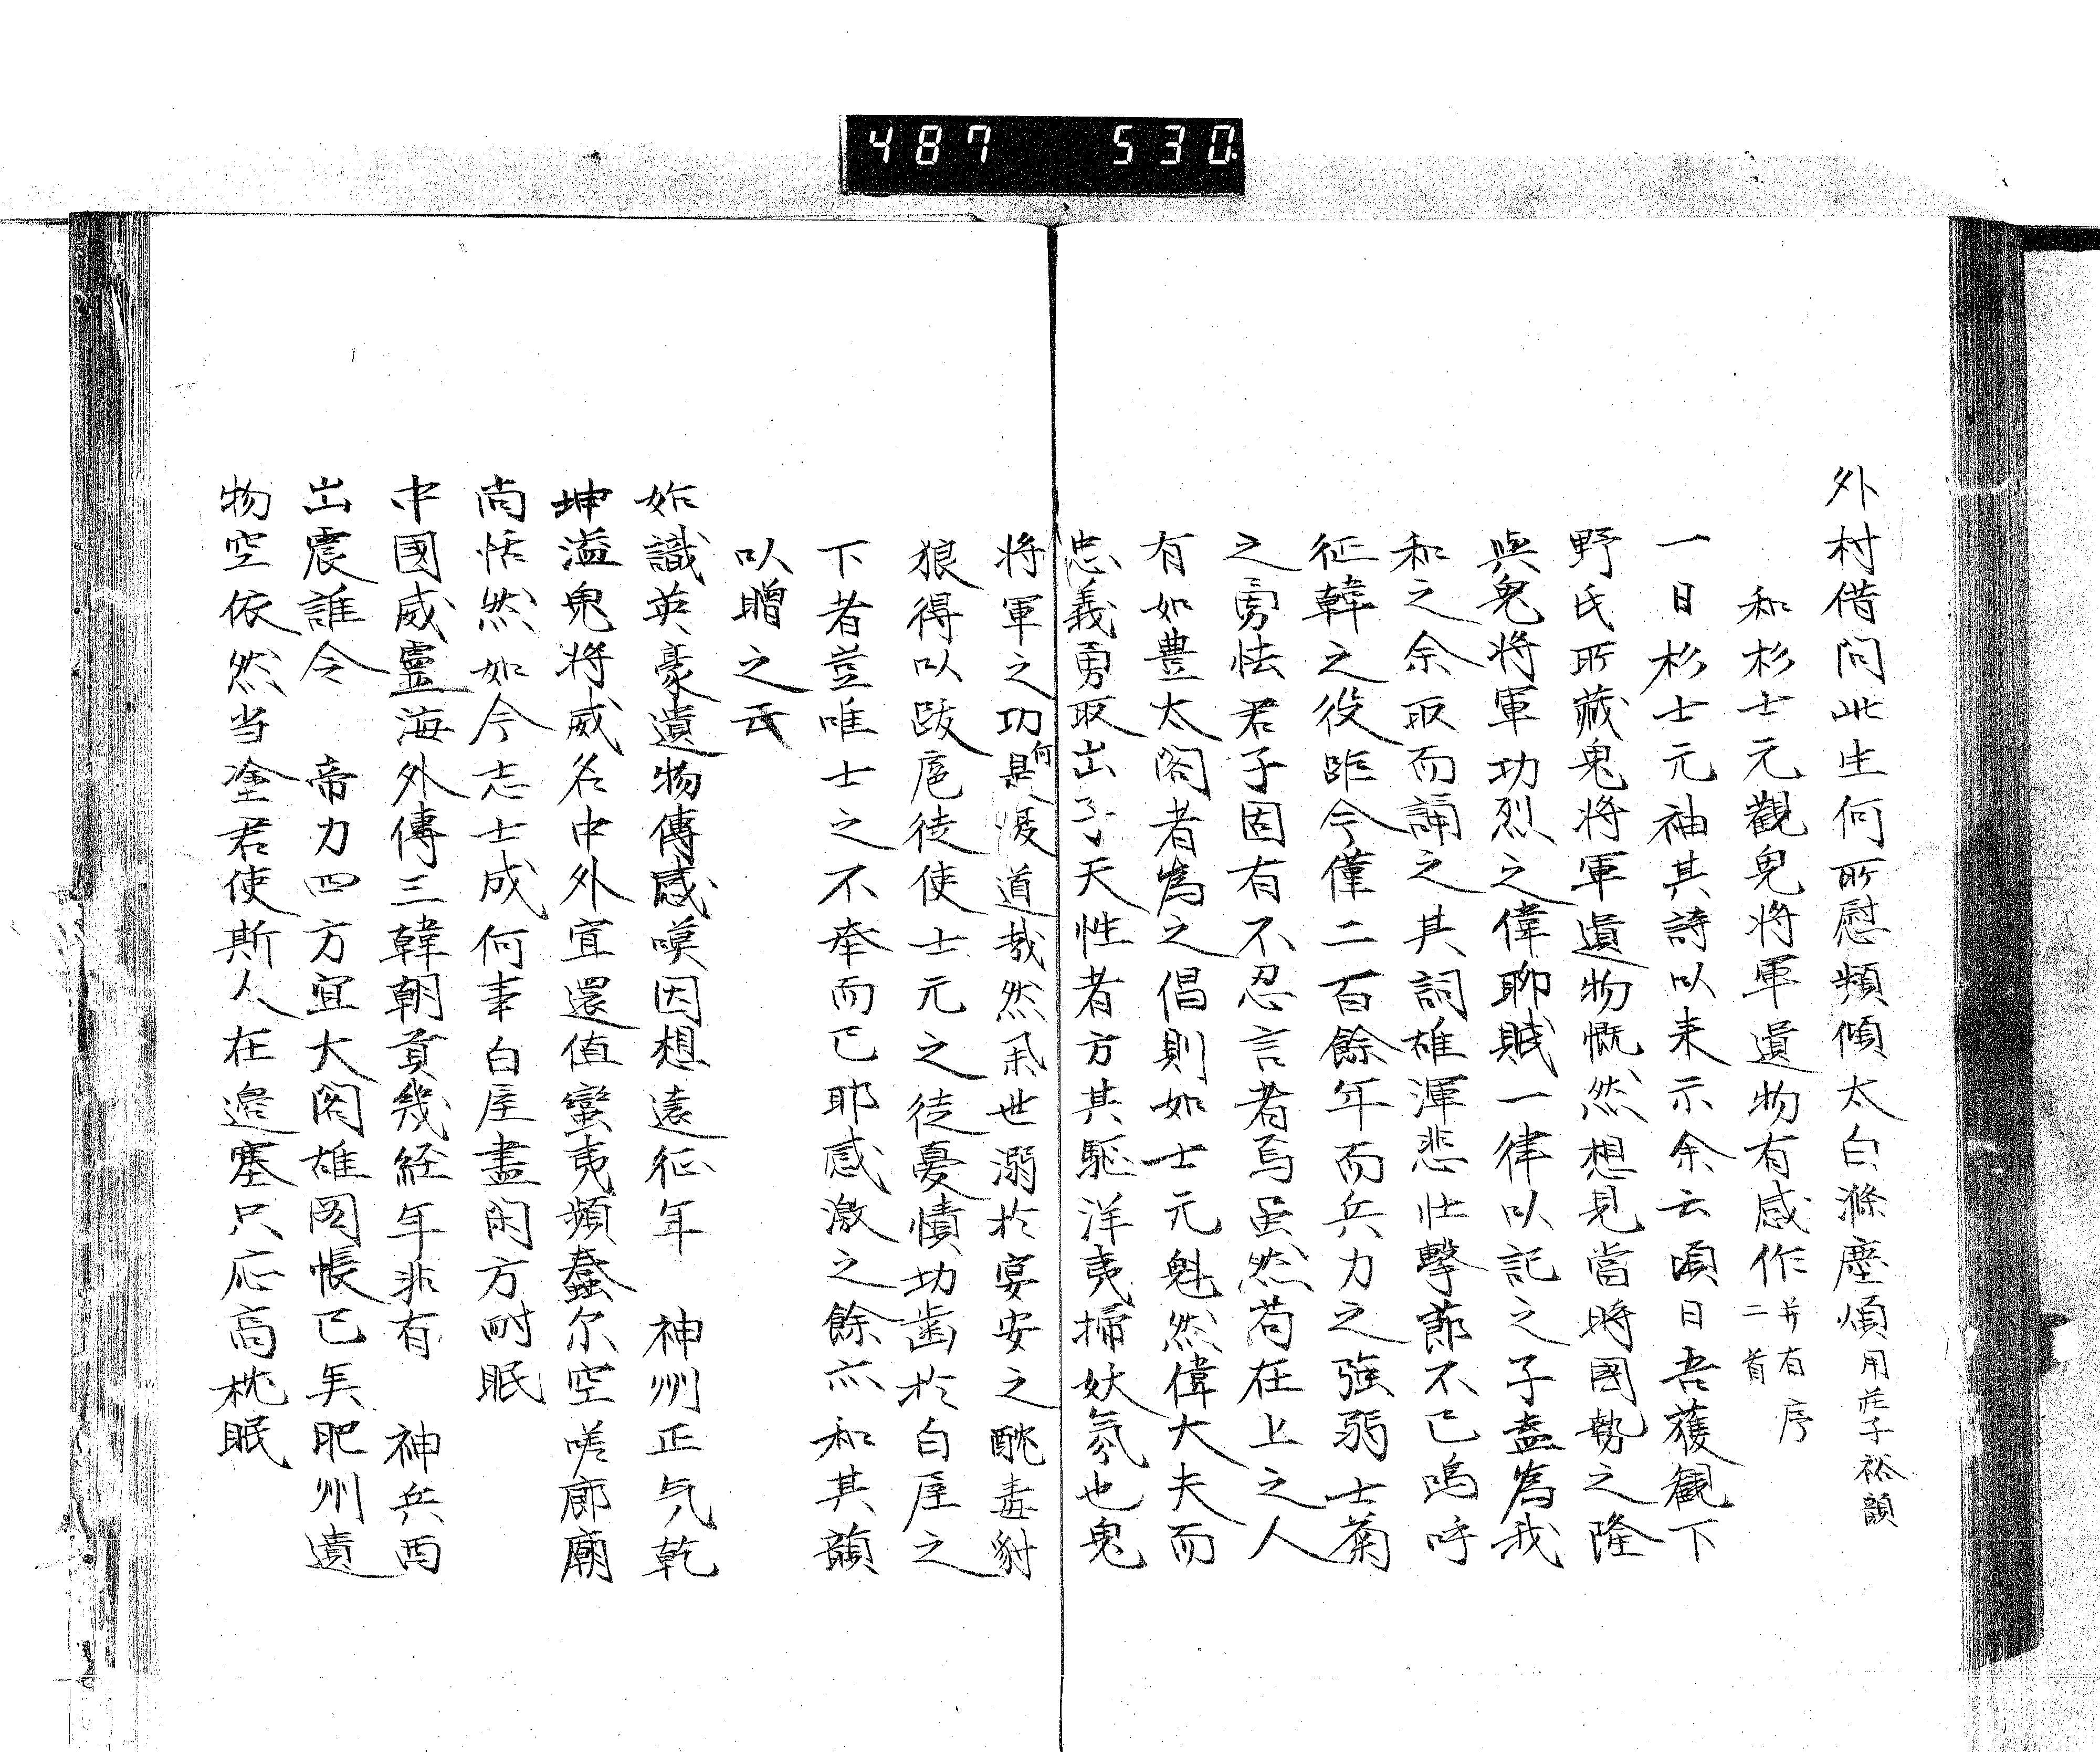 487 530
外村借問此生何所慰頻傾太白滌塵煩用荘子裕韻
和杉士元觀鬼将軍遺物有感作并有序二首
一日杉士元袖其詩以来示余云頃日吾獲観下
野氏所蔵鬼将軍遺物慨然想見當時國勢之隆
與鬼将軍功烈之偉聊賦一律以記之子盍為我
和之余取而誦之其詞雄渾悲壮擊節不已嗚呼
征韓之役距今僅二百餘年而兵力之強弱士氣
之勇怯君子固有不忍言者焉虽然苟在上之人
有如豊太閤者為之倡則如士元魁然偉大夫而
忠義勇敢出于天性者方其駆洋夷掃妖氛也鬼
将軍之功何是復道哉然承世溺於宴安之酖毒豺
狼得以跋扈徒使士元之徒憂憤切歯於白屋之
下者豈唯士之不幸而已耶感激之餘亦和其韻
以贈之云
始識英豪遺物傳感嘆因想遠征年　神州正気乾
坤溢鬼将威名中外宣還値蠻夷頻蠢尓空嗟廊廟
尚恬然如今志士成何事白屋盡閑方耐眠
中國威霊海外傳三韓朝貢幾経年非有　神兵西
出震誰令　帝力四方宣大閤雄図悵已矣肥州遺
物空依然当塗君使斯人在邉塞只応高枕眠